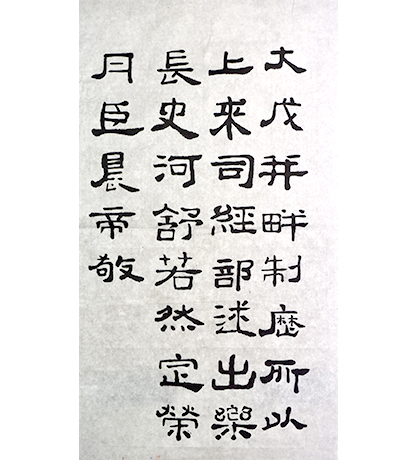 大戊并畔制歷所以
上来司經部迷出樂
長史河舒若然定榮
月臣晨帝敬